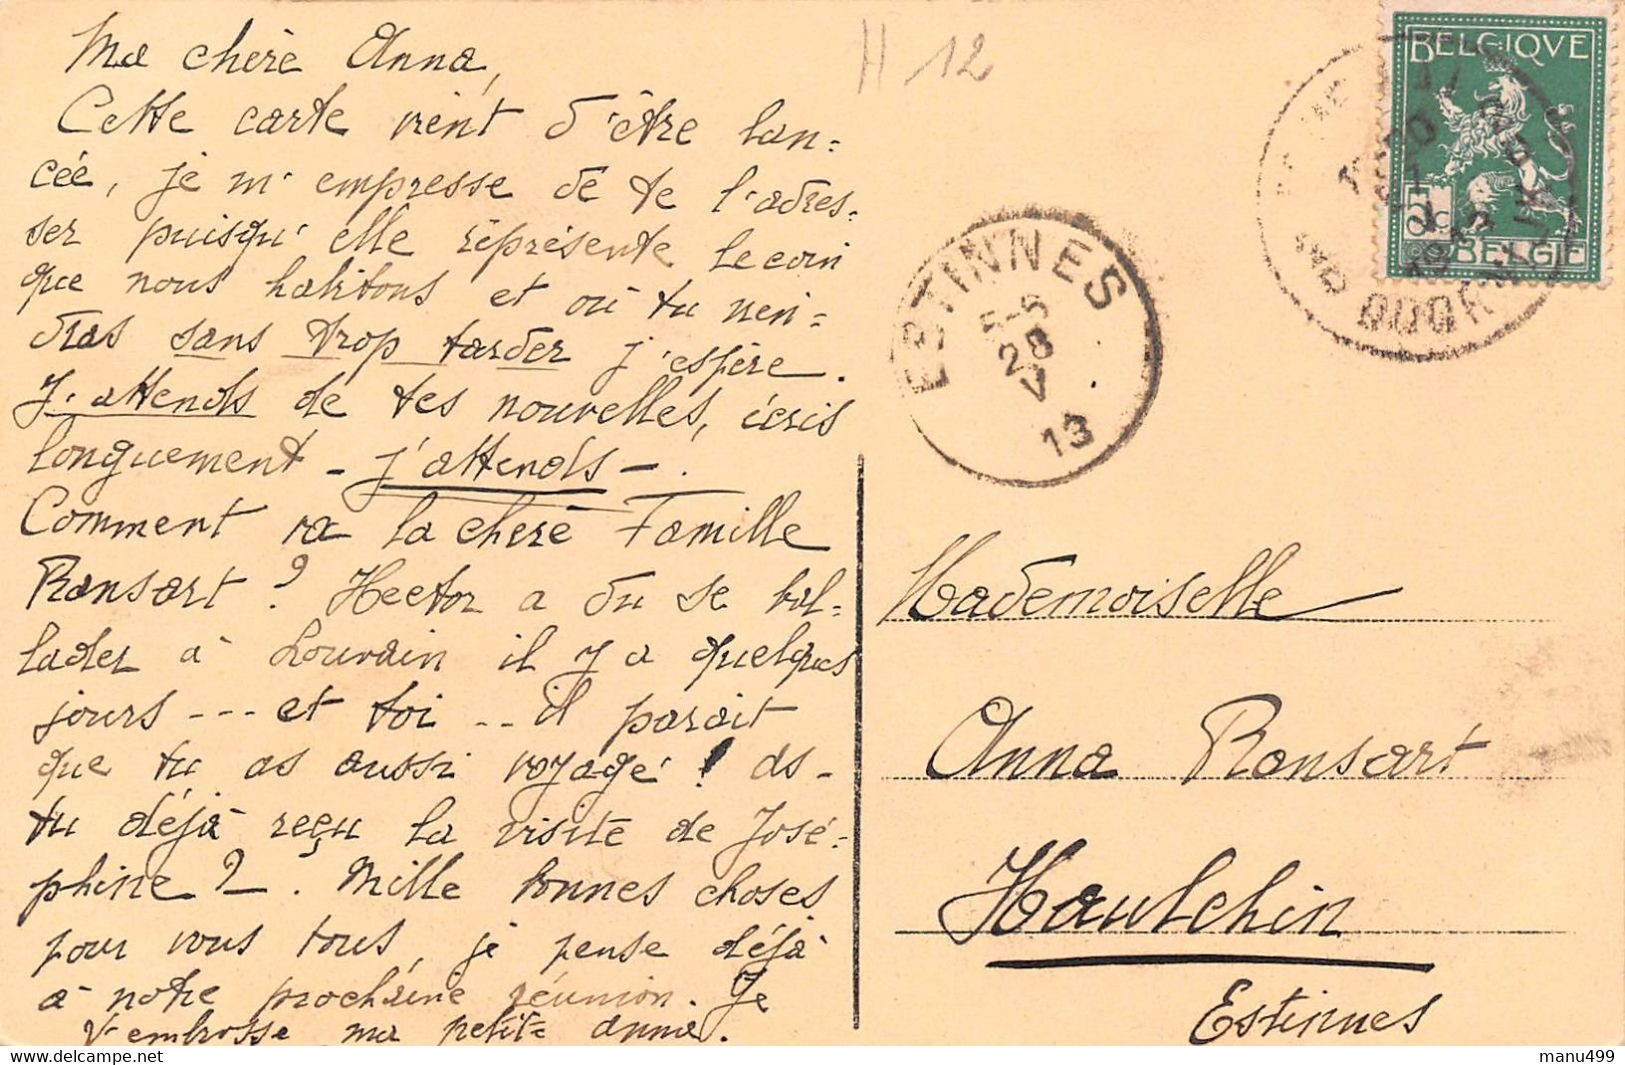 Ma chère Anna,
Cette carte vient d'être lan=
cée, je m'empresse de te l'adres=
ser puisqu'elle représente le coin
que nous habitons et où tu vien=
dras sans trop tarder j'espère.
J'attends de tes nouvelles, écris
longuement - j'attends - .
Comment va la chère Famille
Ransart ? Hector a du se bal=
lader à Louvain il y a quelques
jours --- et toi -- il parait
que tu as aussi voyagé ! As-
tu déjà reçu la visite de José=
phine ? - . Mille bonnes choses
pour vous tous, je pense déjà
à notre prochaine réunion. Je
t'embrasse ma petite Anna.
H 12
BELGIQUE
5 c
BELGIË
1913
ESTINNES
5-6
28
V
13
Mademoiselle
Anna Ransart
Haulchin
Estinnes
manu499